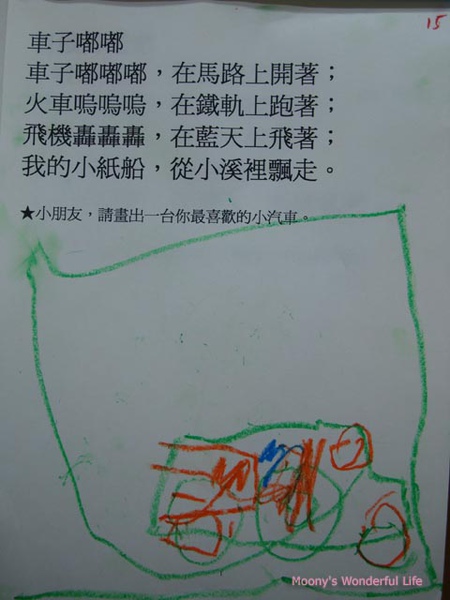 15
車子嘟嘟
車子嘟嘟嘟，在馬路上開著；
火車嗚嗚嗚，在鐵軌上跑著；
飛機轟轟轟，在藍天上飛著；
我的小紙船，從小溪裡飄走。
★小朋友，請畫出一台你最喜歡的小汽車。
Moony's Wonderful Life